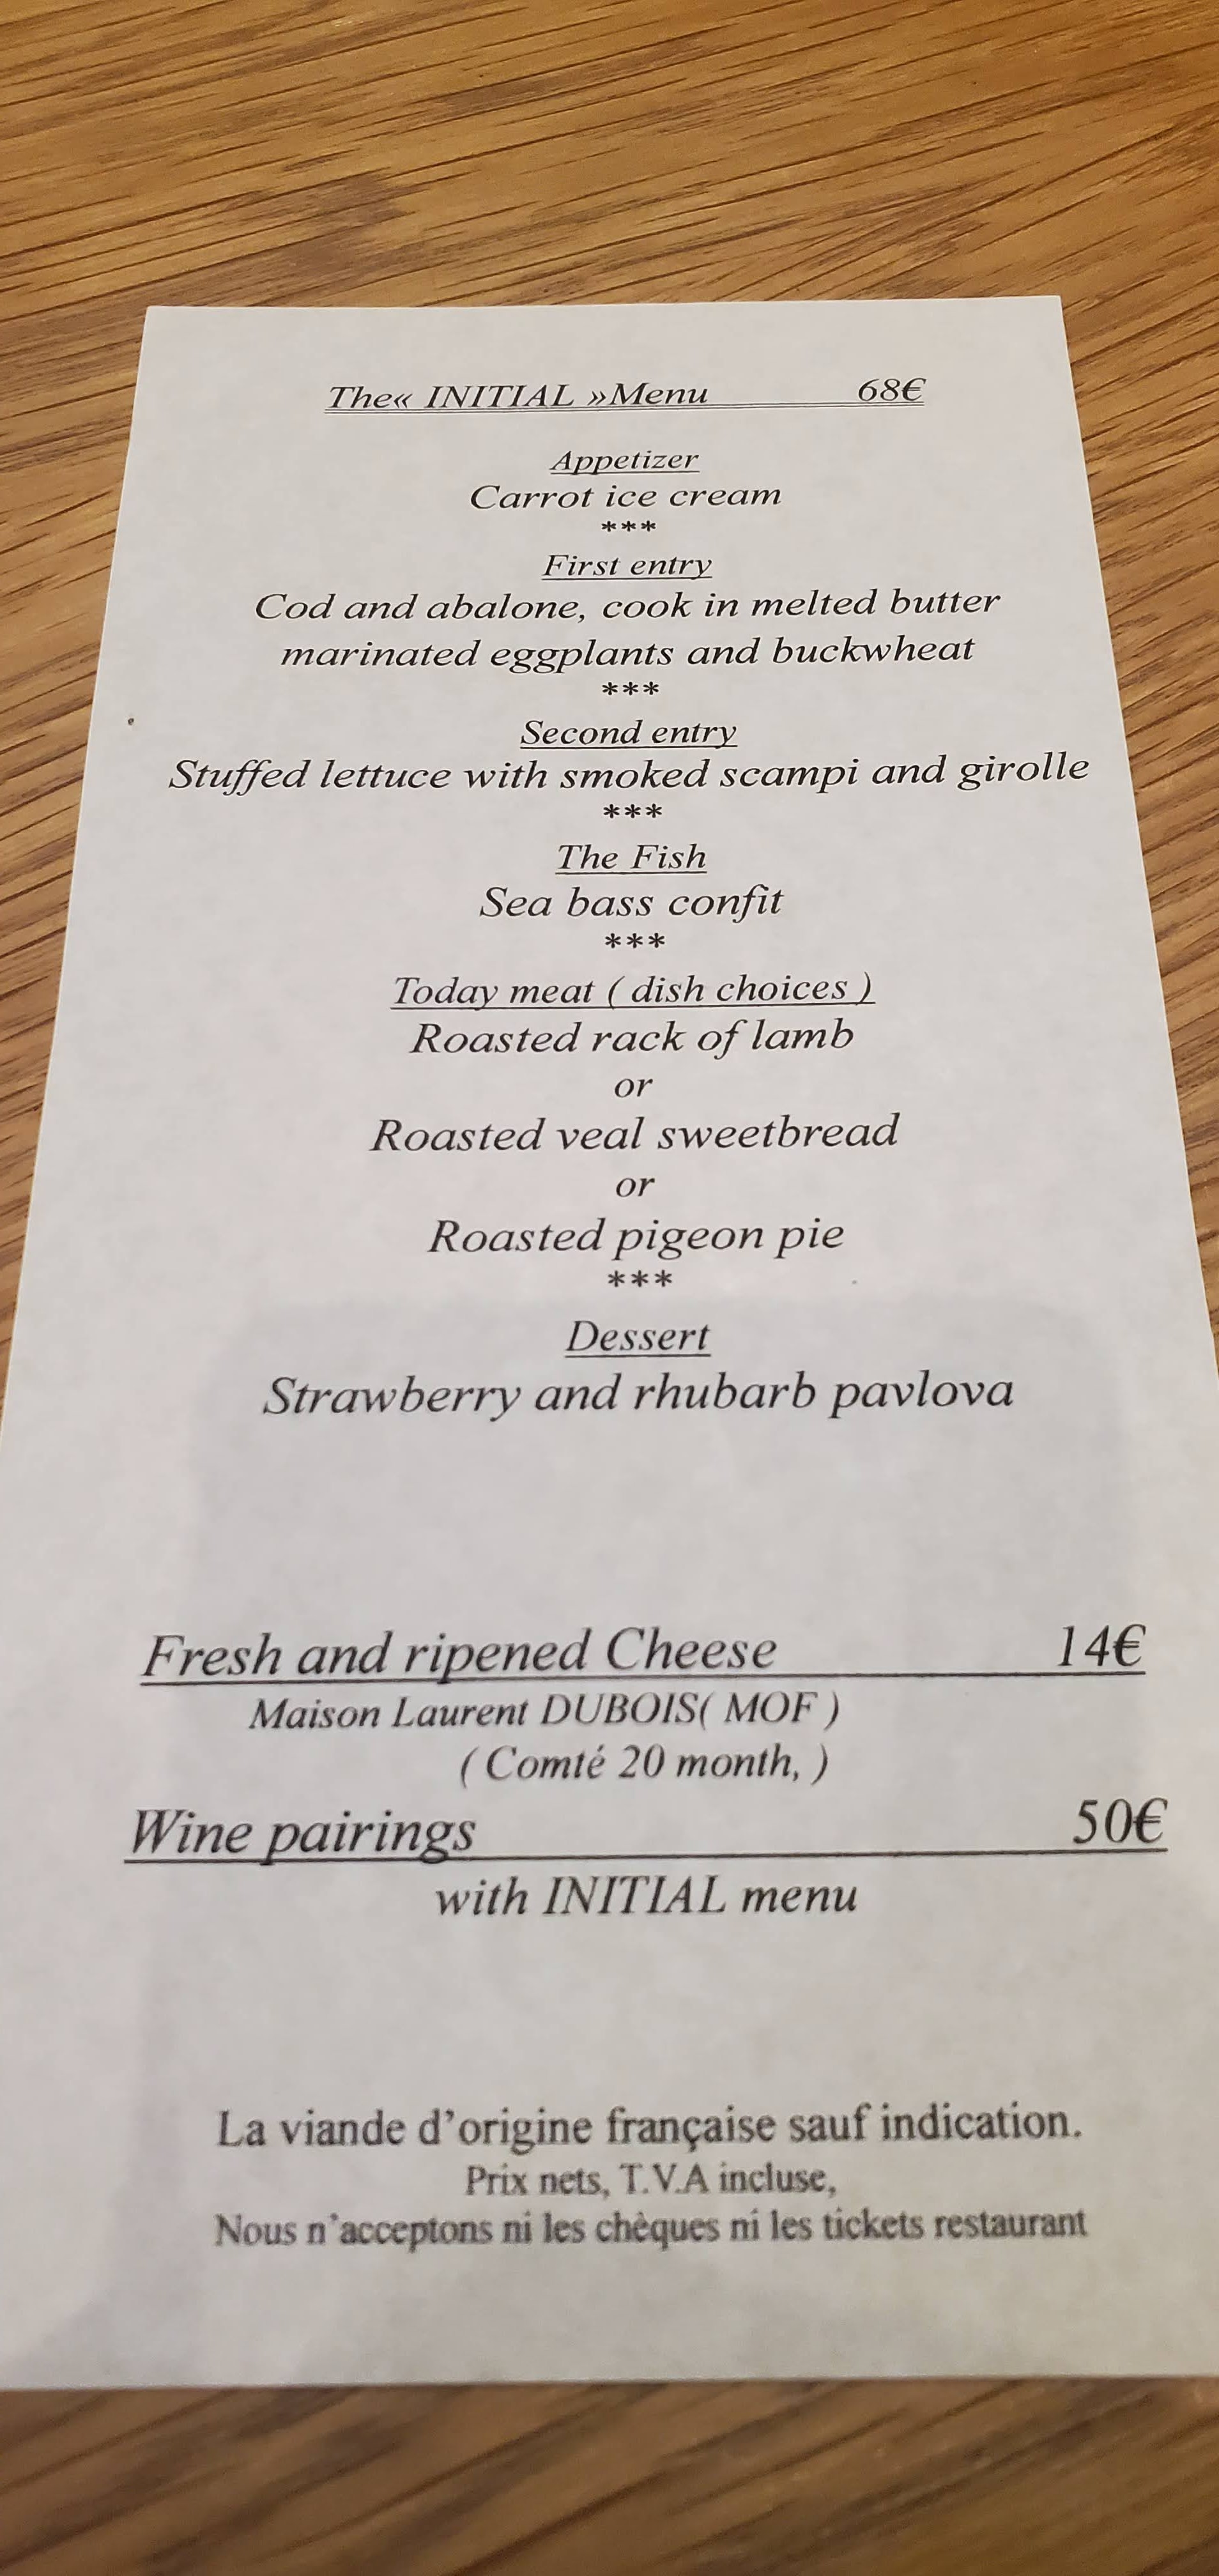 The« INITIAL »Menu 68€
Appetizer
Carrot ice cream
***
First entry
Cod and abalone, cook in melted butter
marinated eggplants and buckwheat
***
Second entry
Stuffed lettuce with smoked scampi and girolle
***
The Fish
Sea bass confit
***
Today meat ( dish choices )
Roasted rack of lamb
or
Roasted veal sweetbread
or
Roasted pigeon pie
***
Dessert
Strawberry and rhubarb pavlova
Fresh and ripened Cheese 14€
Maison Laurent DUBOIS( MOF )
( Comté 20 month, )
Wine pairings 50€
with INITIAL menu
La viande d’origine française sauf indication.
Prix nets, T.V.A incluse,
Nous n’acceptons ni les chèques ni les tickets restaurant